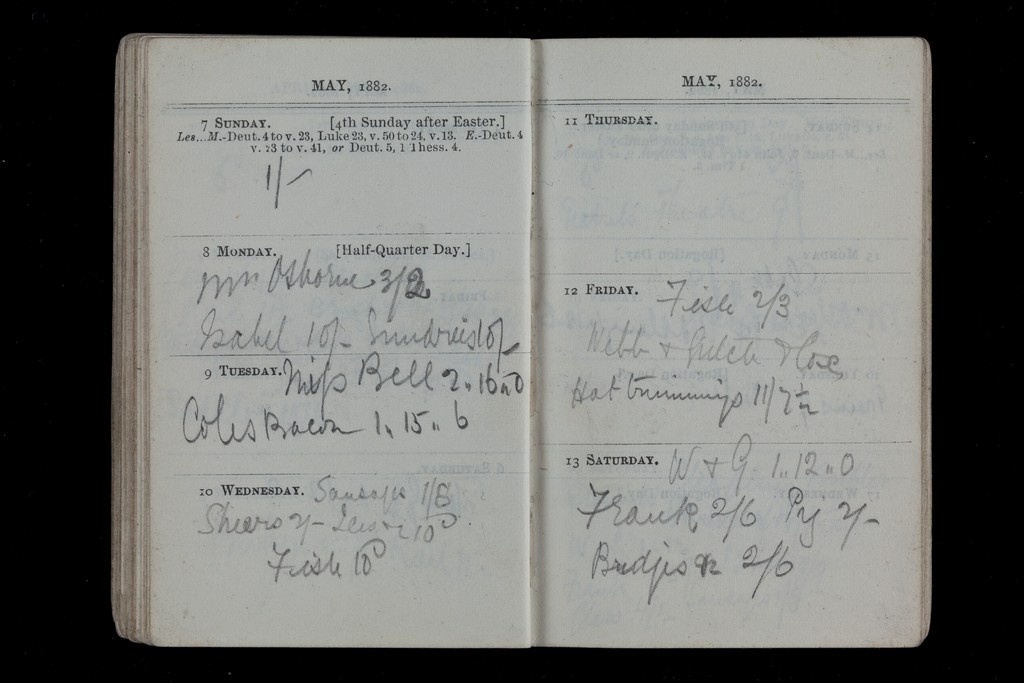 MAY, 1882.
7 SUNDAY. [4th Sunday after Easter.]
Les...M.-Deut. 4 to v. 23, Luke 23, v. 50 to 24, v. 13. E.-Deut. 4
v. 23 to v. 41, or Deut. 5, 1 Thess. 4.
1/-
8 MONDAY. [Half-Quarter Day.]
Mrs Osborne 3/2
Isabel 10/- Sundries 10/-
9 TUESDAY. Miss Bell 2,, 16,, 0
Coles Bacon 1,, 15,, 6
10 WEDNESDAY. Sausages 1/8
Sheers 2/- 10D
Fish 10D
MAY, 1882.
11 THURSDAY.
12 FRIDAY. Fish 2/3
Webb +
Hat trimmings 11/7 1/2
13 SATURDAY. W + G. 1,, 12,, 0
Frank 2/6 2/-
2/6